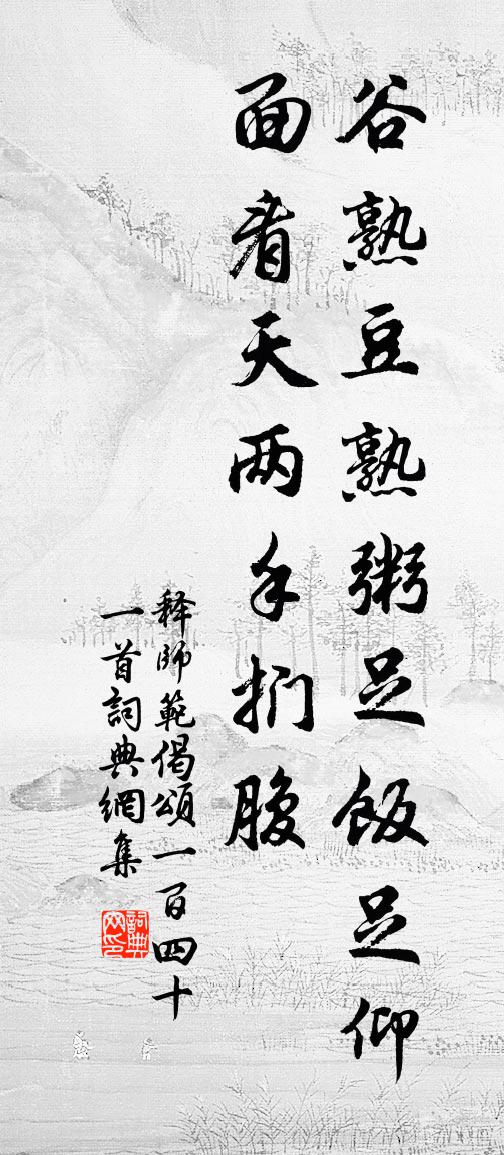 谷熟豆熟粥足飯足仰
面看天两手捫腹
释師範偈頌一百四十
一首詞典網集
詞典网印